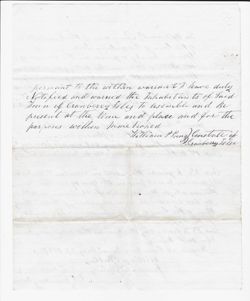 persuant to the within warrant I have duly
Notified and warned the Inhabitants of said
Town of Cranberry Isles to assemble and be
present at the time and place and for the
purposes within mentioned
William P Bunj Constable of
Cranberry Isles